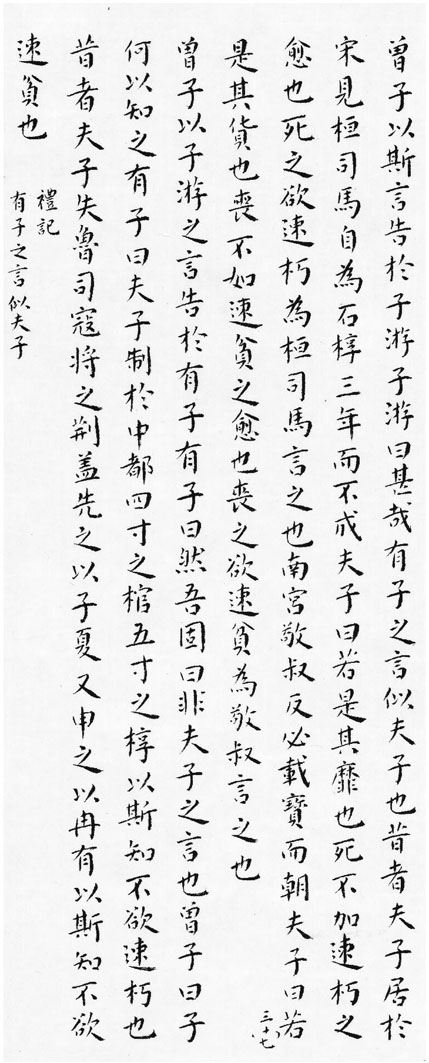 曾子以斯言告於子游子游曰甚哉有子之言似夫子也昔者夫子居於
宋見桓司馬自為石椁三年而不成夫子曰若是其靡也死不如速朽之
愈也死之欲速朽為桓司馬言之也南宮敬叔反必載寶而朝夫子曰若
是其貨也喪不如速貧之愈也喪之欲速貧為敬叔言之也
三十七
曾子以子游之言告於有子有子曰然吾固曰非夫子之言也曾子曰子
何以知之有子曰夫子制於中都四寸之棺五寸之椁以斯知不欲速朽也
昔者夫子失魯司寇將之荆盖先之以子夏又申之以冉有以斯知不欲
速貧也
禮記
有子之言似夫子